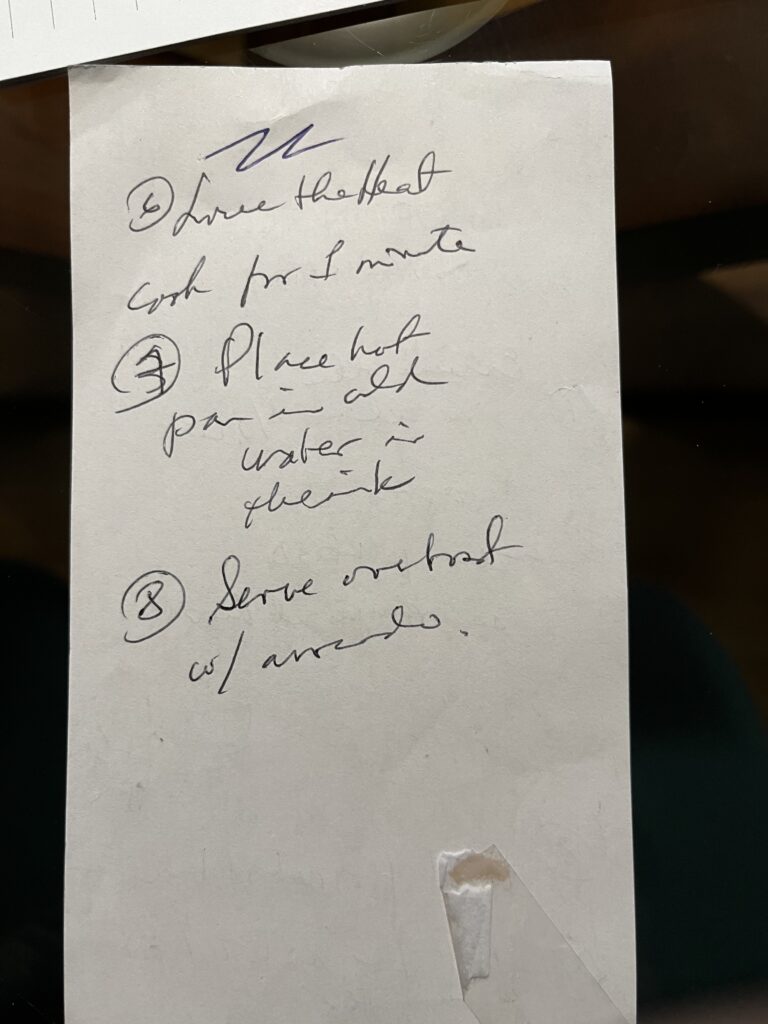 ⑥ Lower the Heat
Cook for 1 minute
⑦ Place hot
pan in cold
water in
the sink
⑧ Serve over toast
w/ avocado.